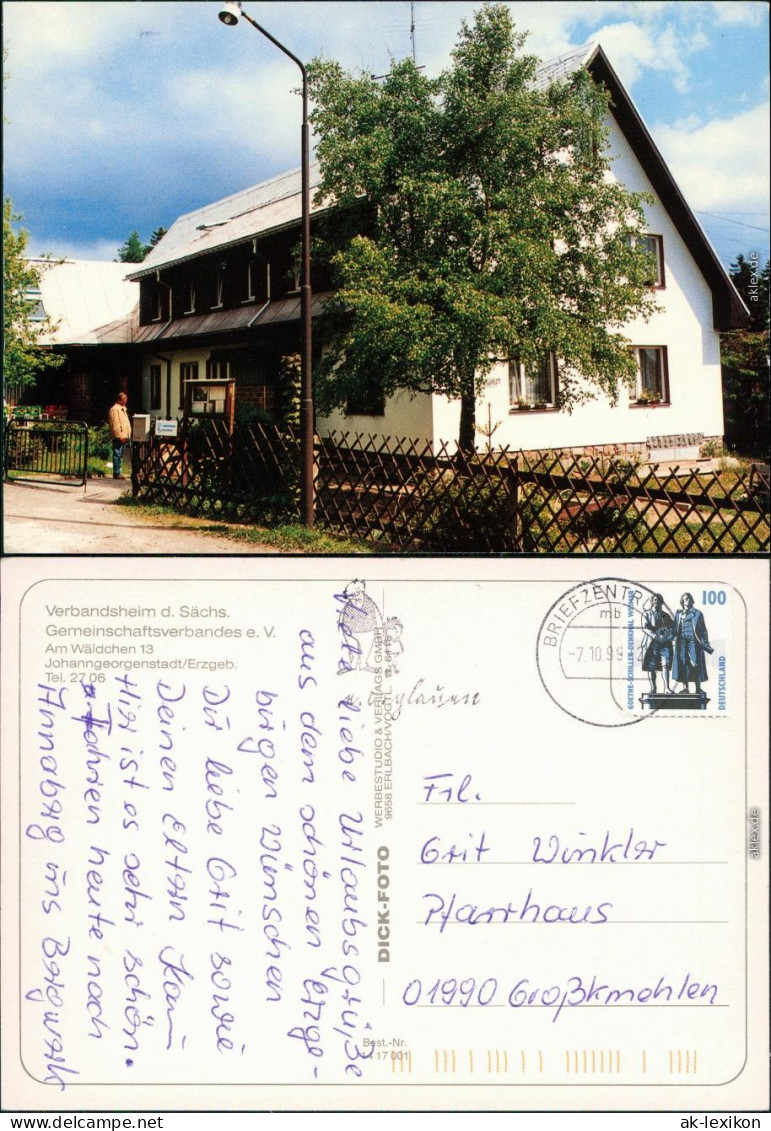 aklex.de
Verbandsheim d. Sächs.
Gemeinschaftsverbandes e. V.
Am Wäldchen 13
Johanngeorgenstadt/Erzgeb.
Tel. 27 06
Viele liebe Urlaubsgrüße
aus dem schönen Erzge-
birgen wünschen
Dir liebe Grit sowie
Deinen Eltern
Hier ist es sehr schön.
Fahren heute noch
Annaberg ins Bergwerk
DICK-FOTO
WERBESTUDIO & VERLAGS GMBH
9658 ERLBACH/VOGTL.
Best.-Nr.
14 17 001
BRIEFZENTR
mb
-7.10.99
100
GOETHE-SCHILLER-DENKMAL WEIMAR
DEUTSCHLAND
Frl.
Grit Winkler
Pfarrhaus
01990 Großkmehlen
aklex.de
www.delcampe.net
ak-lexikon